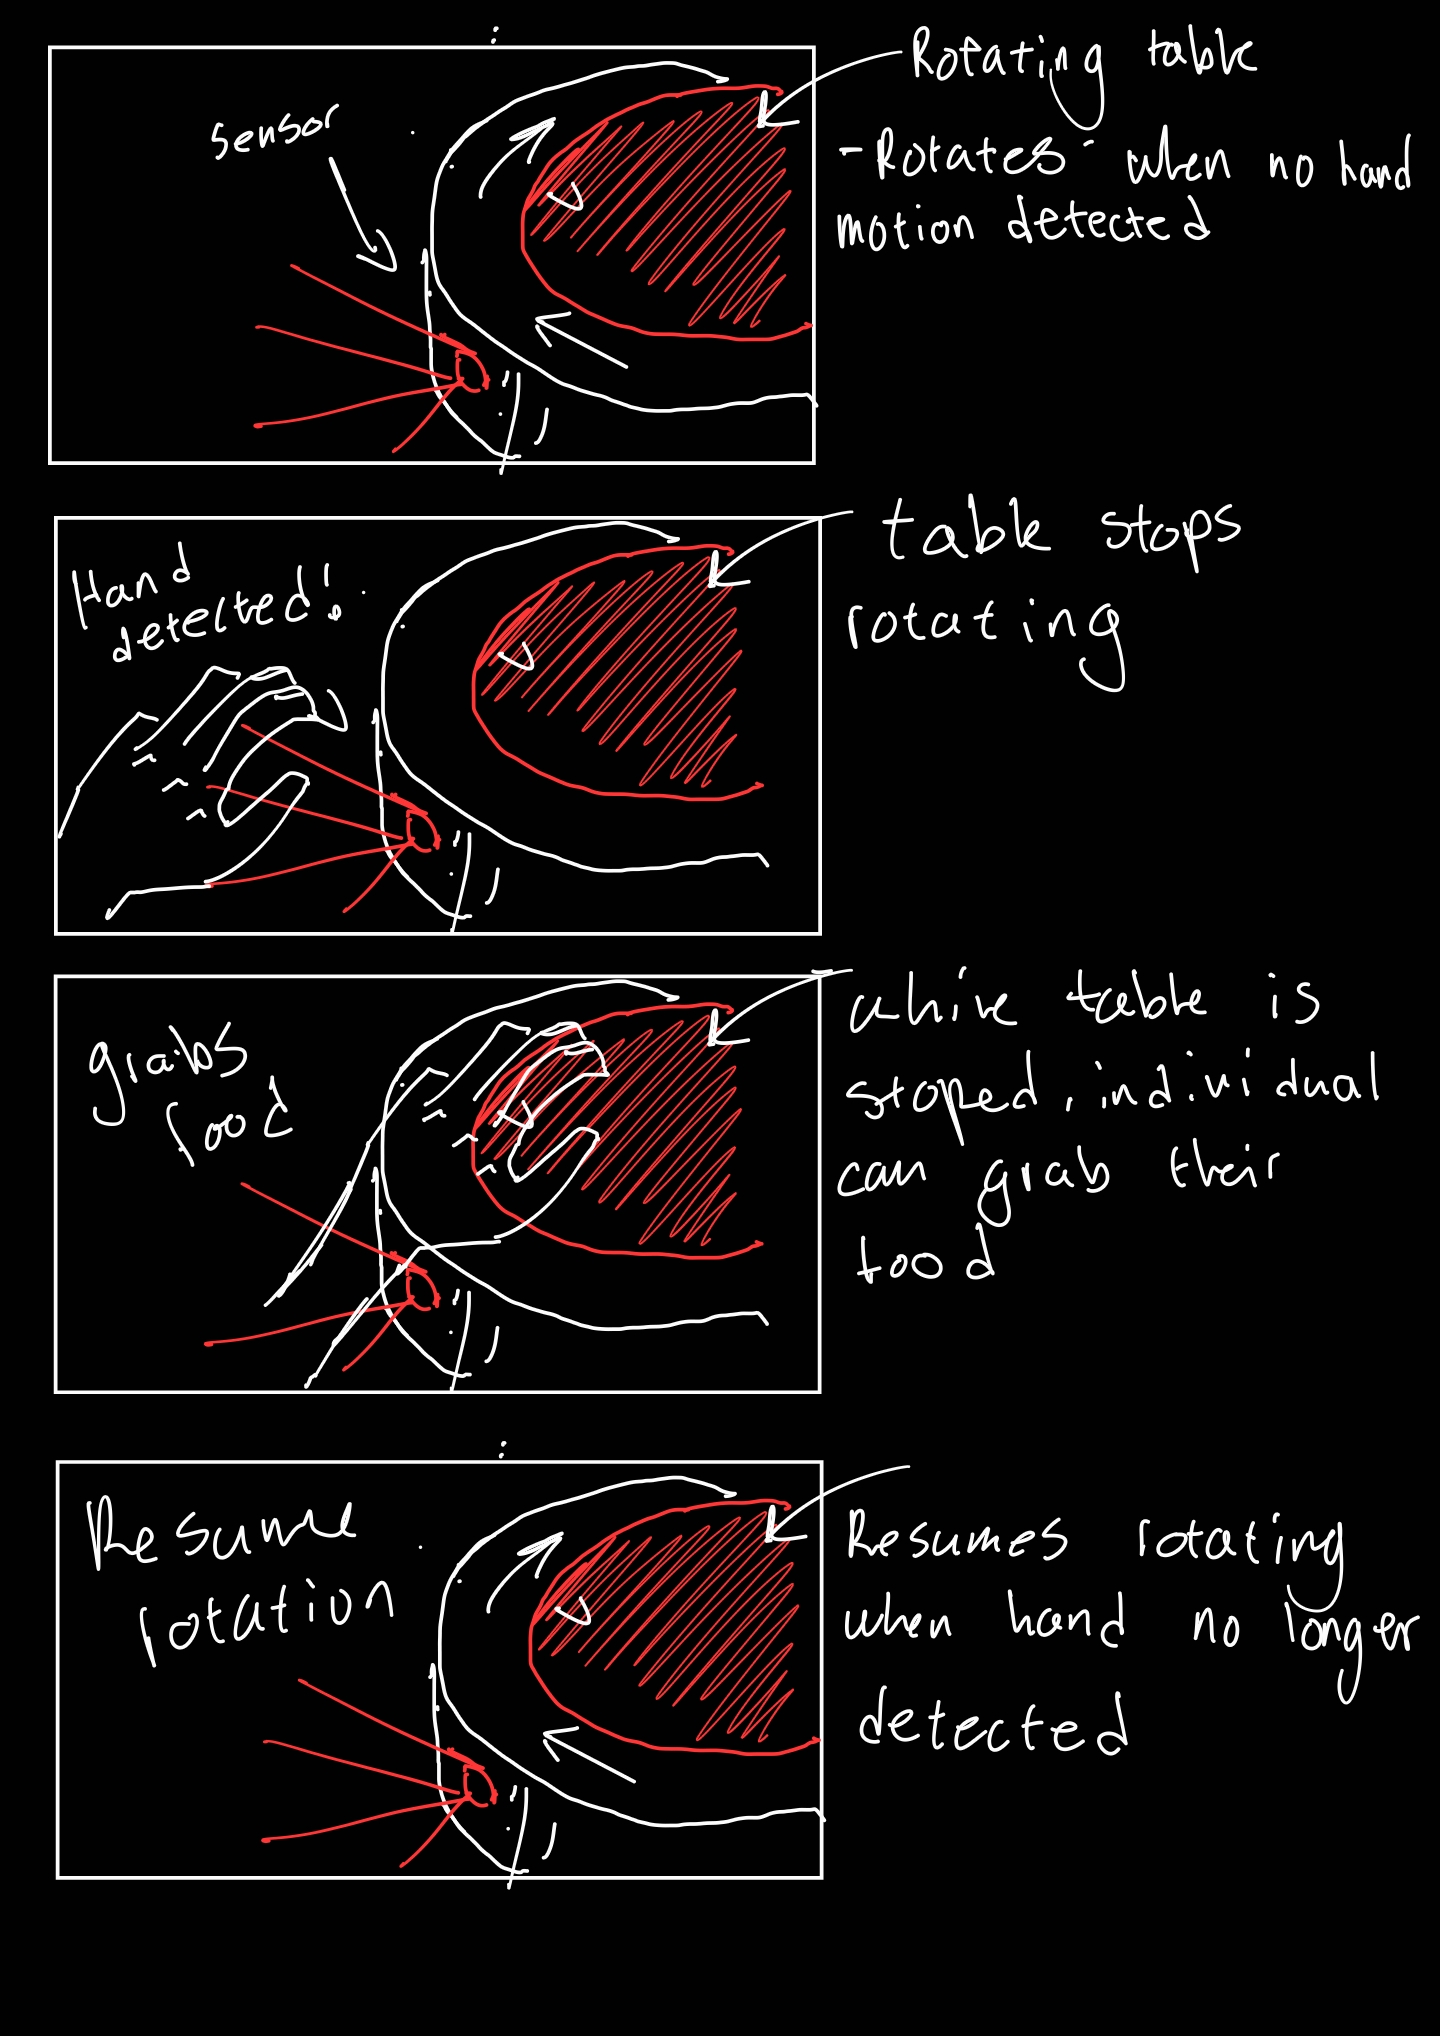 sensor
Rotating table
- Rotates when no hand
motion detected
Hand
detected!
table stops
rotating
grabs
food
while table is
stoped, individual
can grab their
food
Resume
rotation
Resumes rotating
when hand no longer
detected